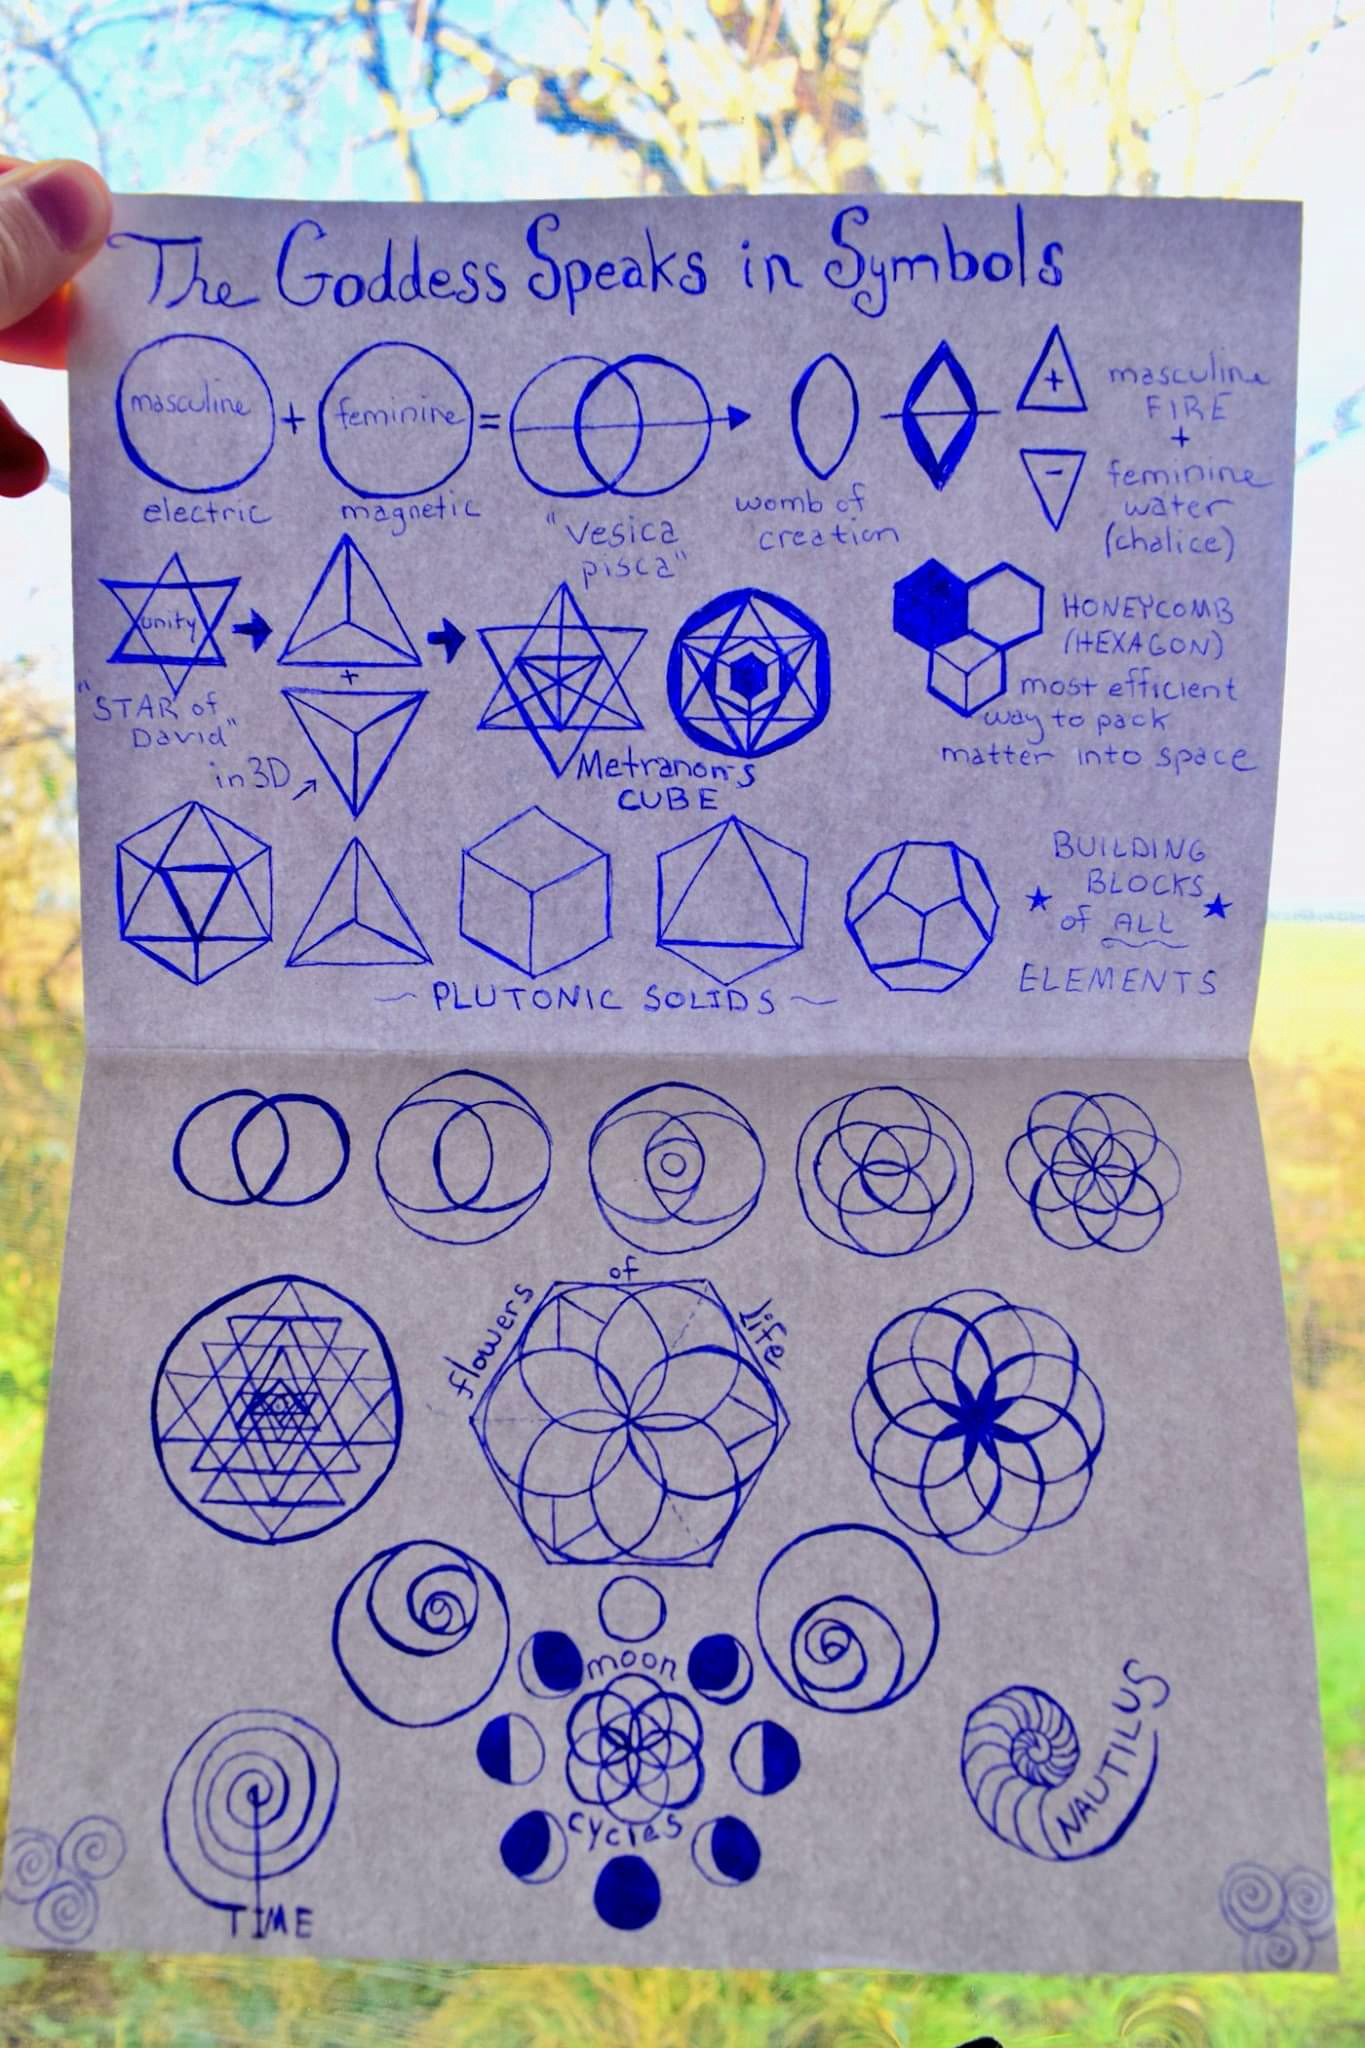 The Goddess Speaks in Symbols
masculine
+
feminine
=
electric
magnetic
"vesica
pisca"
womb of
creation
+
-
masculine
FIRE
+
feminine
water
(chalice)
unity
"STAR of
David"
+
in 3D
Metranon's
CUBE
HONEYCOMB
(HEXAGON)
most efficient
way to pack
matter into space
~ PLUTONIC SOLIDS ~
BUILDING
BLOCKS
of ALL
ELEMENTS
flowers of life
moon
cycles
TIME
NAUTILUS